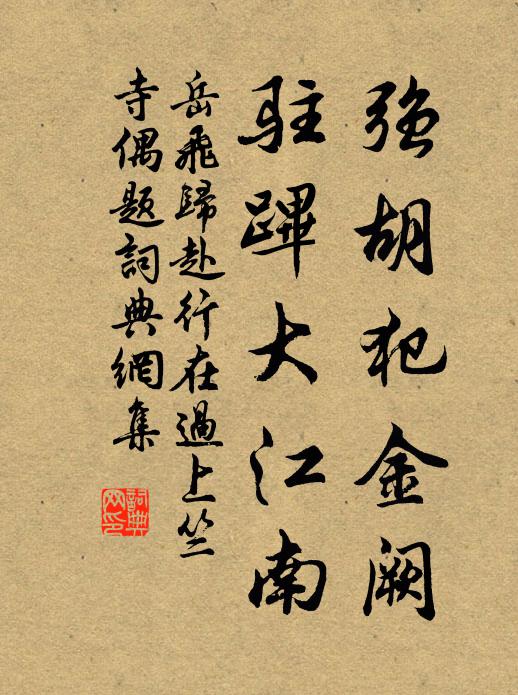 強胡犯金闕
駐蹕大江南
岳飛歸赴行在過上竺
寺偶題詞典網集
詞典網印